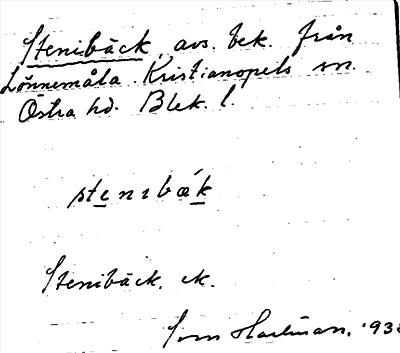 Stenibäck, avs. bek. från
Lönnemåla. Kristianopels sn.
Östra hd. Blek. l.
stenɩbák
Stenibäck, ek.
Hartman. '93